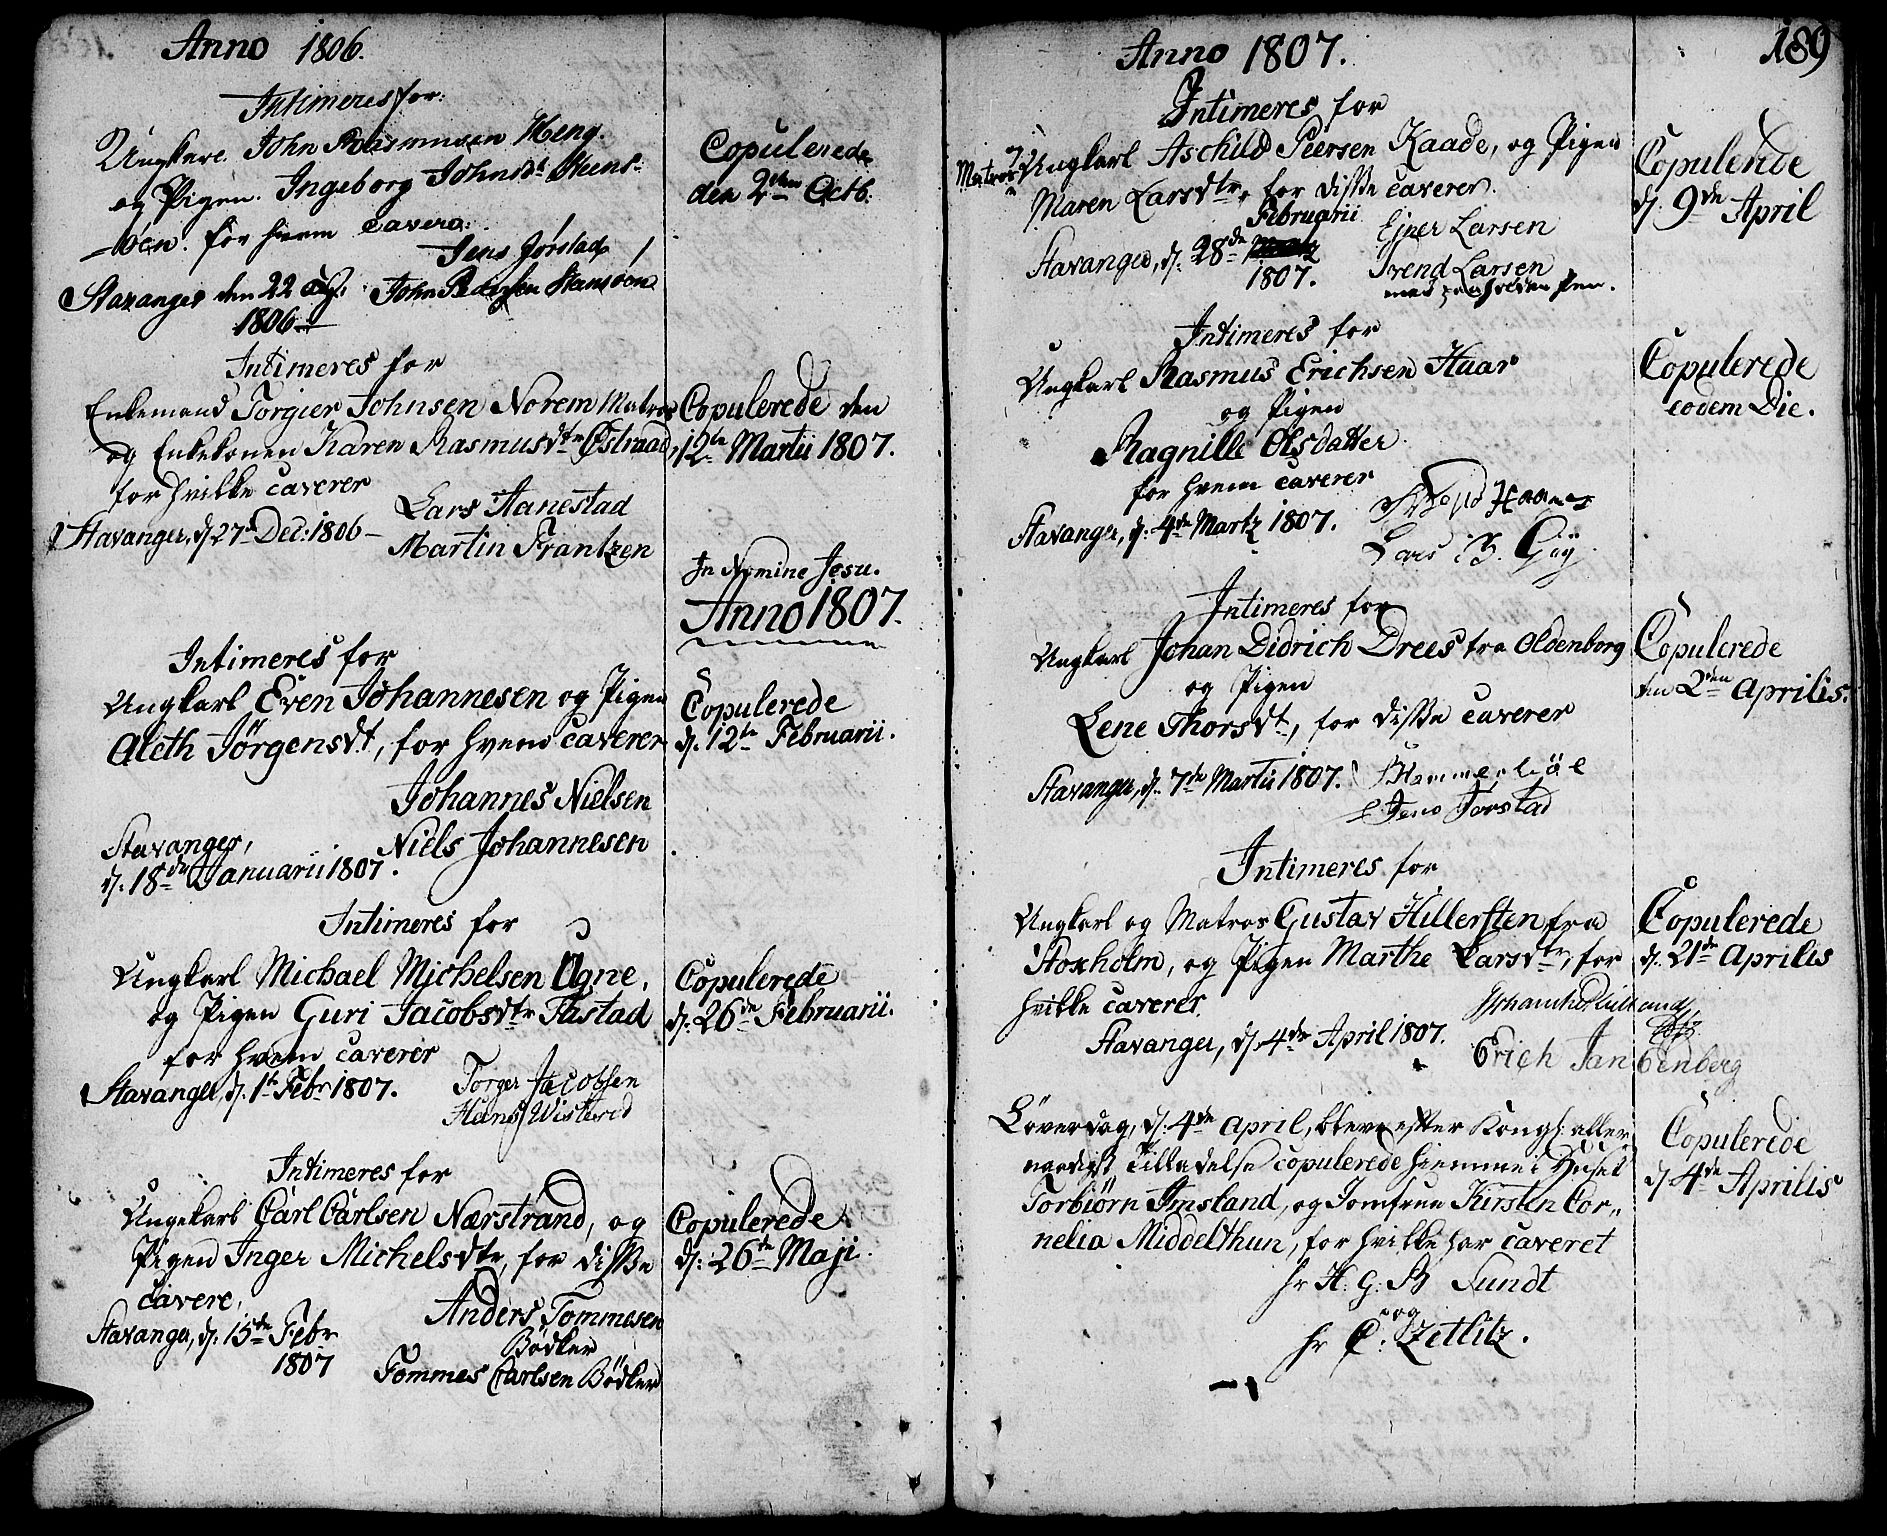 Anno 1806.
Intimeres for:
Ungkarl. John Rasmusen Meng.
og Pigen. Ingeborg Johnsdt Huns-
-øen. for hvem cavera:
Jens Jørstad
Stavanger den 22 Aug. John Pedersen Hansøen
1806
Copulerede
den 2den Octb.
Intimeres for
Enkemand Torgier Johnsen Norem Matros
og Enkekonen Karen Rasmusdtr Østraad,
for hvilke caverer
Lars Aanestad
Stavanger, d. 27de Dec: 1806 -
Martin Frantzen
Copulerede den
12te Martii 1807.
In Nomine Jesu.
Anno 1807.
Intimeres for
Ungkarl Even Johannesen og Pigen
Aleth Jørgensdt, for hvem caverer
Johannes Nielsen
Stavanger, Niels Johannesen
d: 18de Januarii 1807.
Copulerede
d. 12te Februarii.
Intimeres for
Ungkarl Michael Michelsen Ogne,
og Pigen Guri Jacobsdtr Fastad
for hvem caverer
Stavanger, d. 1te Febr 1807. Torger Jacobsen
Hans
Copulerede
d: 26de Februarii.
Intimeres for
Ungekarl Carl Carlsen Nærstrand, og
Pigen Inger Michelsdtr, for disse
cavere,
Anders Tommesen
Stavanger, d. 15de Febr
Bødker
1807
Tommes Carlsen Bødker
Copulerede
d: 26de Maji.
Anno 1807.
189
Intimeres for
og Matros Ungkarl Aschild Peersen Kaade, og Pigen
Maren Larsdtr, for disse caverer.
Februarii
Stavanger, d: 28de
1807.
Ejner Larsen
Svend Larsen
med paaholden Pen.
Copulerede
d. 9de April
Intimeres for
Ungkarl Rasmus Erichsen Haar
og Pigen
Ragnille Olsdatter
for hvem caverer
Stavanger, d: 4de Martz 1807.
Lars
Copulerede
eodem Die.
Intimeres for
Ungkarl Johan Didrich Drees fra Oldenborg
og Pigen
Lene Thorsdt, for disse caverer
Stavanger, d. 7de Martii 1807.
Jens Jørstad
Copulerede
den 2den Aprilis.
Intimeres for
Ungkarl og Matros Gustav Hillersten fra
Stoxholm, og Pigen Marthe Larsdtr, for
hvilke caverer.
Stavanger, d. 4de April 1807.
Erich
Copulerede
d. 21de Aprilis
Løverdag, d: 4de April, blev efter Kongl: aller
naadigst Tilladelse copulerede hiemme i Huset
Torbiørn Imsland, og Jomfrue Kirsten Cor„
nelia Middelthun, for hvilke har caveret
hr H. G. B Sundt
og
hr C. Zetlitz.
Copulerede
d. 4de Aprilis